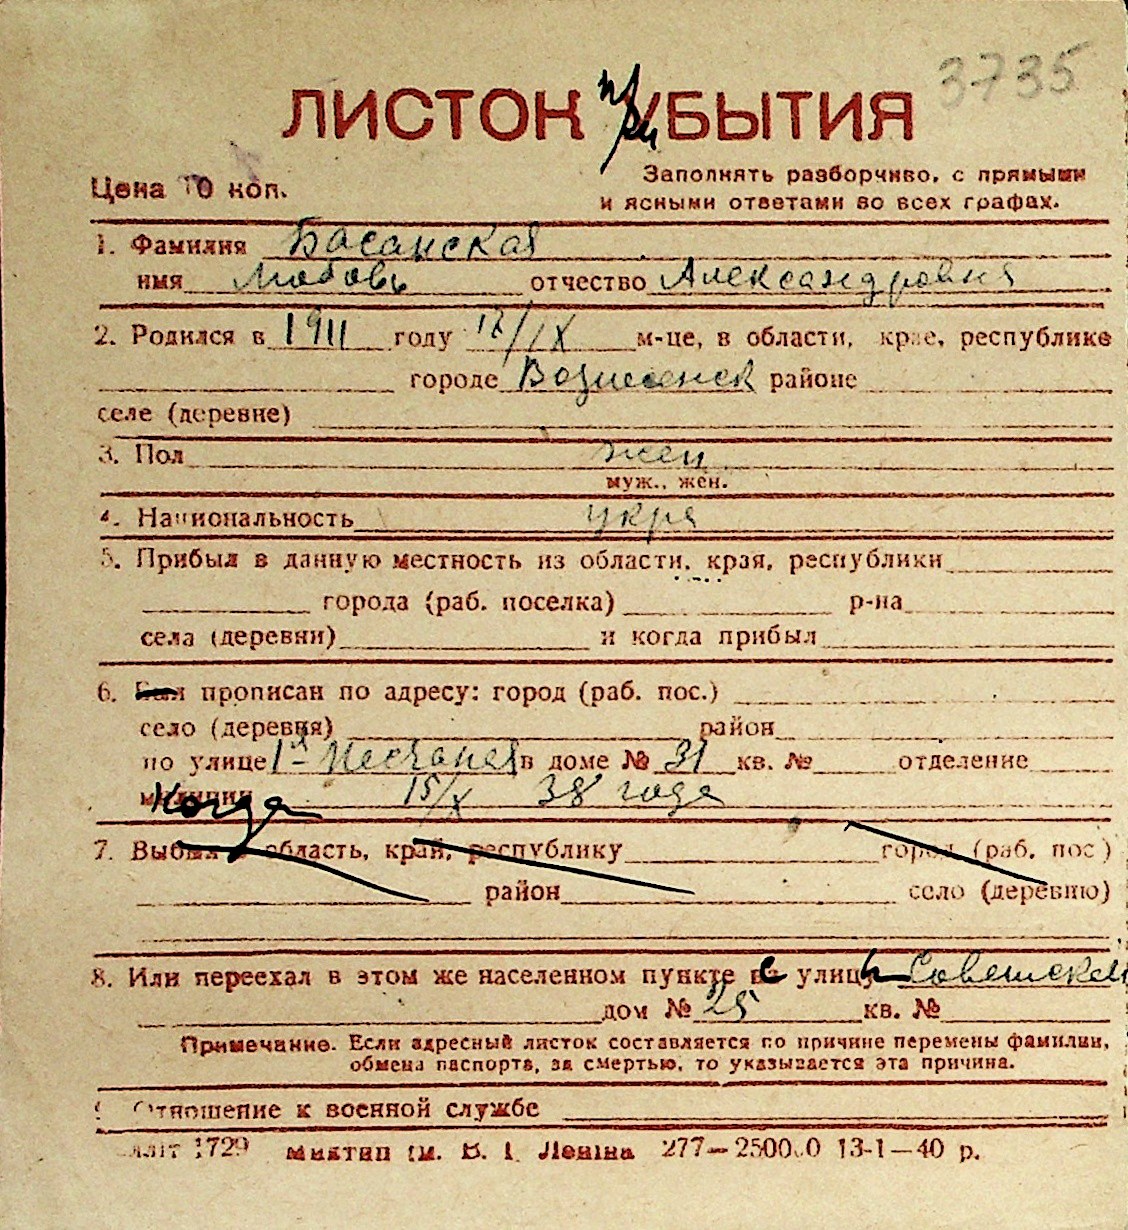 3735
ЛИСТОК при УБЫТИЯ
Цена 10 коп.
Заполнять разборчиво, с прямыми
и ясными ответами во всех графах.
1. Фамилия Басанская
имя Любовь отчество Александровна
2. Родился в 1911 году 17/IX м-це, в области, крае, республике
городе Вознесенск районе
селе (деревне)
3. Пол жен
муж., жен.
4. Национальность укра
5. Прибыл в данную местность из области, края, республики
города (раб. поселка) р-на
села (деревни) и когда прибыл
6. Был прописан по адресу: город (раб. пос.)
село (деревня) район
по улице 1я Песчаная в доме № 31 кв. № отделение
милиции Когда 15/X 38 года
7. Выбыл в область, край, республику город (раб. пос)
район село (деревню)
8. Или переехал в этом же населенном пункте с улицы Советской
дом № 25 кв. №
Примечание. Если адресный листок составляется по причине перемены фамилии,
обмена паспорта, за смертью, то указывается эта причина.
9 Отношение к военной службе
1729 Миктип ім. В. І. Леніна 277—25000.0 13-1—40 р.